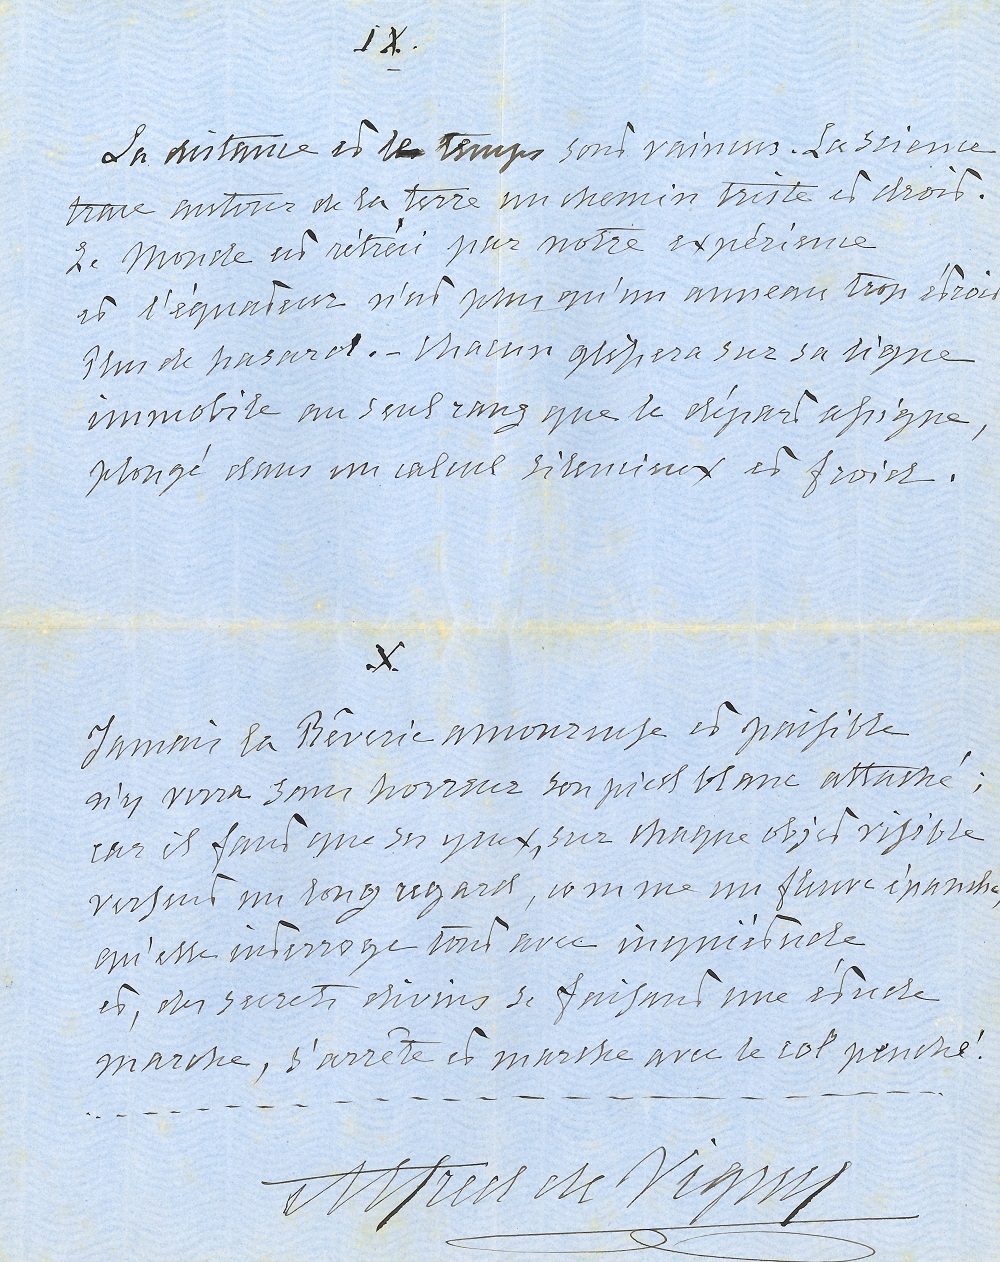 IX.
La distance et le temps sont vaincus. La Science
trace autour de la terre un chemin triste et droit.
Le Monde est rétréci par notre expérience
et l'équateur n'est plus qu'un anneau trop étroit
Plus de hasard. – Chacun glissera sur sa ligne
immobile au seul rang que le départ assigne,
plongé dans un calcul silencieux et froid.
X
Jamais la Rêverie amoureuse et paisible
n'y verra sans horreur son pied blanc attaché ;
car il faut que ses yeux, sur chaque objet visible
versent un long regard, comme un fleuve épanché,
qu'elle interroge tout avec inquiétude
et, des secrets divins se faisant une étude
marche, s'arrête et marche avec le col penché.
Alfred de Vigny